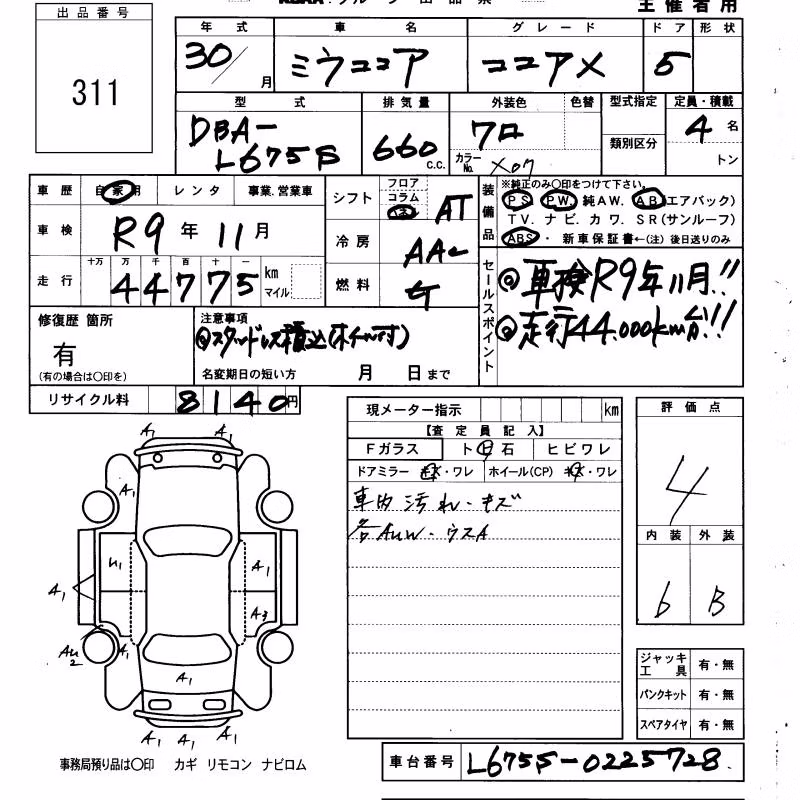 主催者用
出品番号
311
年式
30/月
車名
ミラココア
グレード
ココアX
ドア 形状
5
型式
DBA-
L675S
排気量
660 c.c.
外装色 色替
クロ
カラーNo. X07
型式指定
類別区分
定員・積載
4名
トン
車歴 自家用 レンタ 事業.営業車
車検 R9年11月
走行 十万 万 千 百 十 一
44775 km マイル
シフト フロア コラム インパネ AT
冷房 AAC
燃料 ガ
装備品
※純正のみ○印をつけて下さい。
PS PW. 純AW. AB(エアバック)
TV. ナビ. カワ. SR(サンルーフ)
ABS・ 新車保証書←(注) 後日送りのみ
セールスポイント
◎車検R9年11月!!
◎走行44.000km台!!
修復歴 箇所
有
(有の場合は○印を)
注意事項
◎スタッドレス積込(ホイール付)
名変期日の短い方 月 日まで
リサイクル料 8140円
現メーター指示 km
【査定員記入】
Fガラス ト日石 ヒビワレ
ドアミラー キズ・ワレ ホイール(CP) キズ・ワレ
車内汚れ・キズ
各AUW・ウスA
評価点
4
内装 外装
b B
ジャッキ工具 有・無
パンクキット 有・無
スペアタイヤ 有・無
A1 A1
A1
U1 A1
A1 A3
AU2 A1
A1
A1 A1 A1
事務局預り品は○印 カギ リモコン ナビロム
車台番号 L675S-0225728